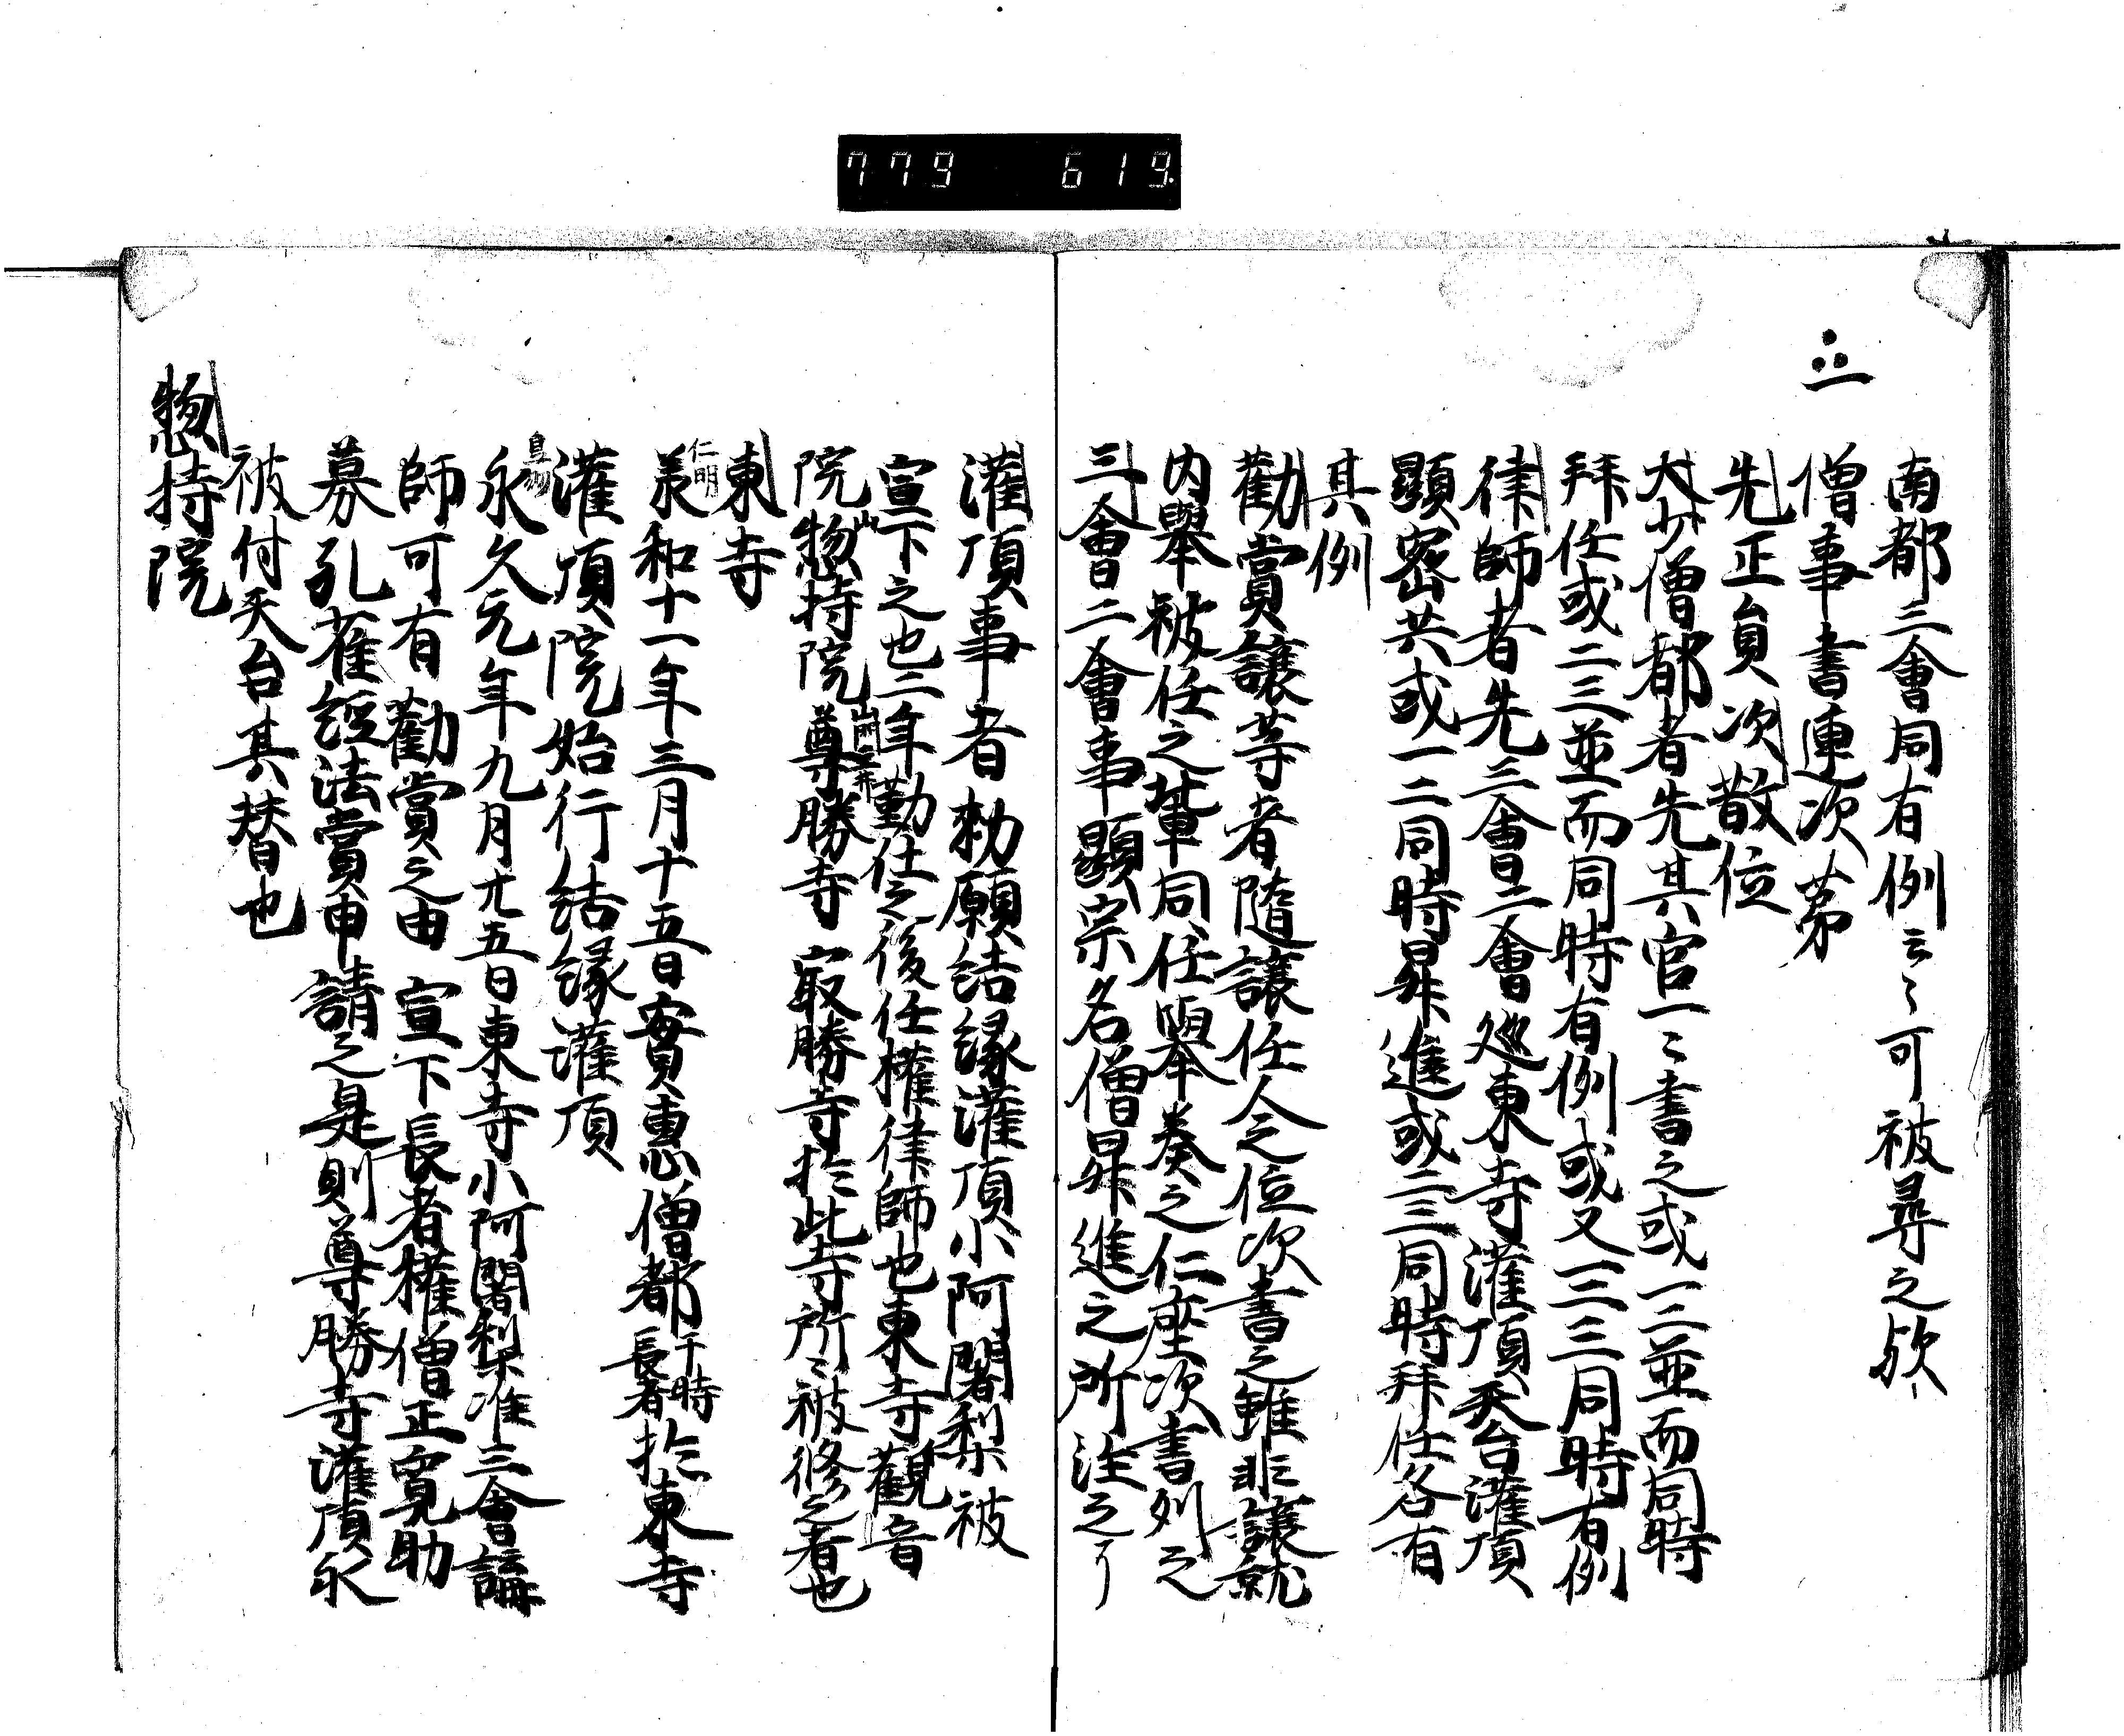 779 619
南都三會同有例云々可被尋之歟
僧事書連次第
先正員次散位
大少僧都者先其官一々書之或一二並而同時
拜任或二三並而同時有例或又一二三同時有例
律師者先三會二會迯東寺灌頂天台灌頂
顯密共或一二同時昇進或二三同時拜任各有
其例
勸賞譲等者随譲任人之位次書之雖非譲就
内舉被任之輩同任舉奏之仁座次書列之
三會二會事顯宗名僧昇進之所注之了
灌頂事者勅願結緣灌頂小阿闍梨被
宣下之也二年勤仕之後任權律師也東寺觀音
院惣持院尊勝寺最勝寺於此寺所々被修之者也
山
東寺
仁明
羕和十一年三月十五日實惠僧都于時長者於東寺
灌頂院始行結緣灌頂
鳥羽
永久元年九月廿五日東寺小阿闍梨准三會講
師可有勸賞之由宣下長者權僧正寬助
募孔雀經法賞申請之是則尊勝寺灌頂永
被付天台其替也
惣持院